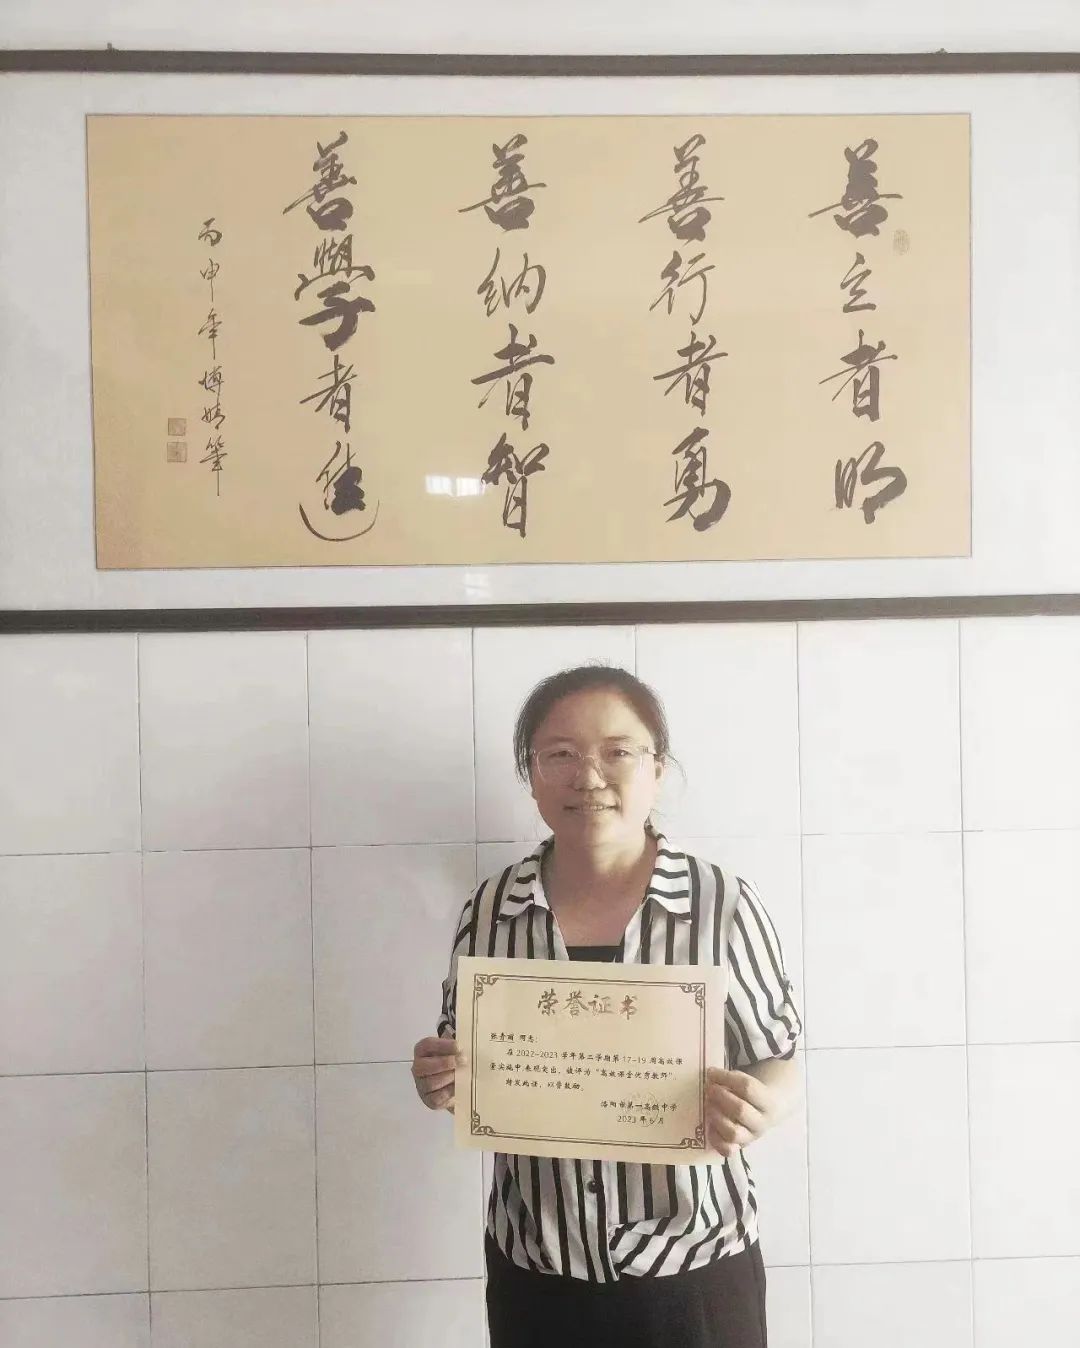 善立者明
善行者勇
善纳者智
善學者进
丙申年博婧筆
荣誉证书
张秀丽 同志：
在2022-2023学年第二学期第17-19周高效课
堂实施中表现突出，被评为“高效课堂优秀教师”。
特发此证，以资鼓励。
洛阳市第一高级中学
2023年6月